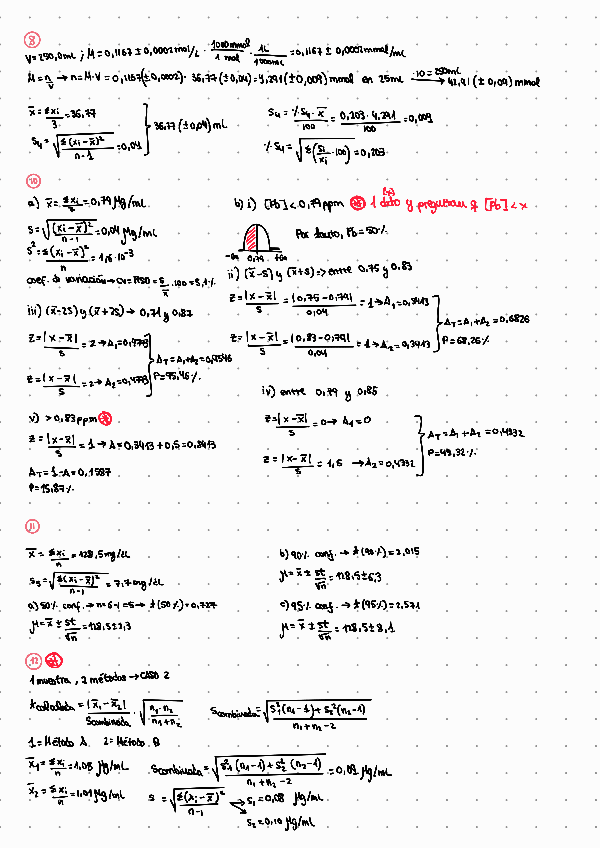 8
V=250,0mL ; M=0,1167 ± 0,0002 mol/L · 1000mmol/1 mol · 1L/1000mL = 0,1167 ± 0,0002 mmol/mL
M=n/V → n=M·V=0,1167(±0,0002)· 36,77(±0,04)=4,291(±0,009) mmol en 25mL ·10=250mL → 42,91(±0,09) mmol
x̄ = Σxi/3 = 36,77
S4 = √(Σ(xi-x̄)²/n-1) = 0,04
36,77(±0,04) mL
S4 = %S4·x̄/100 = 0,203·4,291/100 = 0,009
%S4 = √(Σ(Si/xi·100)) = 0,203
10
a) x̄ = Σxi/n = 0,79 µg/mL
S = √((xi-x̄)²/n-1) = 0,04 µg/mL
S² = Σ(xi-x̄)²/n = 1,6·10⁻³
coef. de variación → CV=RSD = S/x̄ ·100 = 5,1%
b) i) [Pb] < 0,79 ppm 1 dato y preguntan [Pb] < x
-∞ 0,79 +∞
Pb=50%
ii) (x̄-S) y (x̄+S) => entre 0,75 y 0,83
Z = |x-x̄|/S = |0,75-0,79|/0,04 = 1 → A1=0,3413
Z = |x-x̄|/S = |0,83-0,79|/0,04 = 1 → A2=0,3413
AT=A1+A2=0,6826
P=68,26%
iii) (x̄-2S) y (x̄+2S) → 0,71 y 0,87
Z = |x-x̄|/S = 2 → A1=0,4773
Z = |x-x̄|/S = 2 → A2=0,4773
AT=A1+A2=0,9546
P=95,46%
iv) entre 0,79 y 0,85
Z = |x-x̄|/S = 0 → A1=0
Z = |x-x̄|/S = 1,5 → A2=0,4332
AT=A1+A2=0,4332
P=43,32%
v) > 0,83 ppm
Z = |x-x̄|/S = 1 → A=0,3413+0,5=0,8413
AT=1-A=0,1587
P=15,87%
11
x̄ = Σxi/n = 128,5 mg/dL
S5 = √(Σ(xi-x̄)²/n-1) = 7,7 mg/dL
a) 50% conf. → n=6-1=5 → t(50%)=0,727
µ = x̄ ± St/√n = 128,5±2,3
b) 90% conf. → t(90%)=2,015
µ = x̄ ± St/√n = 128,5±6,3
c) 95% conf. → t(95%)=2,571
µ = x̄ ± St/√n = 128,5±8,1
12
1 muestra, 2 métodos → CASO 2
tcalculada = |x̄1-x̄2|/Scombinada · √(n1·n2/n1+n2)
Scombinada = √(S1²(n1-1)+S2²(n2-1)/n1+n2-2)
1=Método A 2=Método B
x̄1 = Σxi/n = 1,08 µg/mL
Scombinada = √(S1²(n1-1)+S2²(n2-1)/n1+n2-2) = 0,09 µg/mL
S = √(Σ(xi-x̄)²/n-1) → S1=0,08 µg/mL
S2=0,10 µg/mL